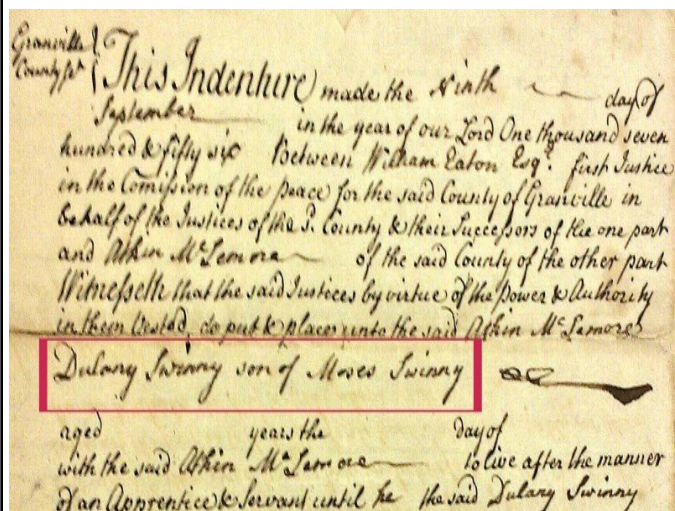 Granville
County Sst
This Indenture made the Ninth day of
September in the year of our Lord One thousand seven
hundred & fifty six Between William Eaton Esqr. first Justice
in the Comission of the Peace for the said County of Granville in
behalf of the Justices of the sd. County & their Successors of the one part
and Atkin McLemore of the said County of the other part
Witnesseth that the said Justices by virtue of the Power & Authority
in them Vested, do put & place unto the said Atkin McLemore
Dulany Swinny son of Moses Swinny
aged years the day of
with the said Atkin McLemore to live after the manner
of an Apprentice & Servant until he the said Dulany Swinny